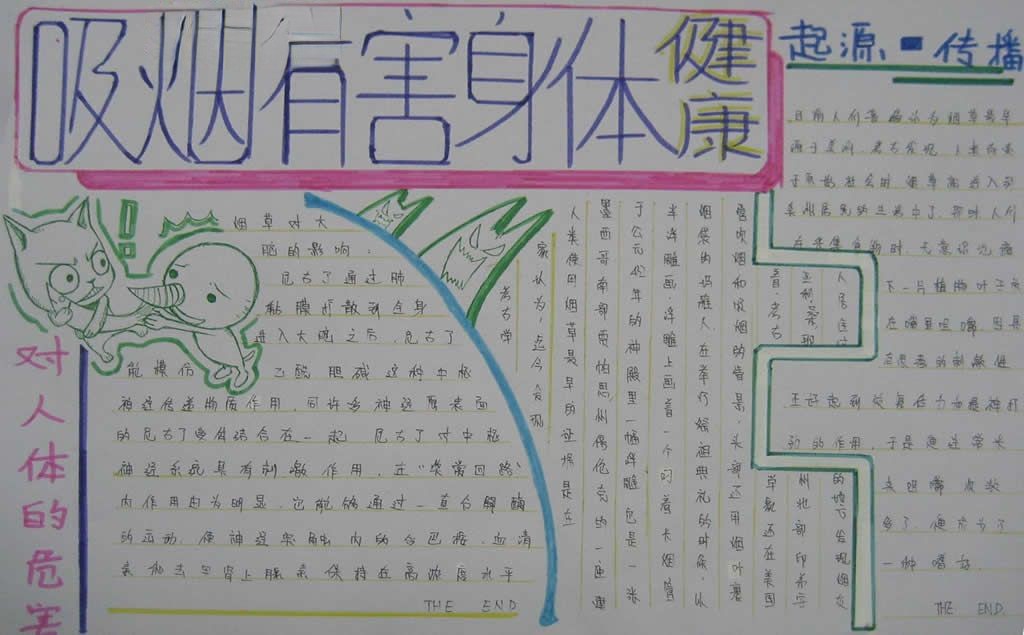 吸烟有害身体健康
起源、传播
对人体的危害
烟草对大
脑的影响:
尼古丁通过肺
黏膜扩散到全身
进入大脑之后,尼古丁
能模仿 乙酰胆碱这种中枢
神经传递物质作用,同许多神经原表面
的尼古丁受体结合在一起 尼古丁对中枢
神经系统具有刺激作用,在“ 回路”
内作用尤为明显,它能够通过
的运动,使神经突触内的多巴胺、血清
素和去甲肾上腺素保持在高浓度水平
THE END
考古学
家认为,迄今发现
人类使用烟草最早的证据是在
墨西哥南部贾帕思州偶伦克的一座建
于公元432年的神殿里一幅浮雕 它是一张
半浮雕画,浮雕上画着一个叼着长烟管
烟袋的玛雅人,在举行祭祖典礼的时候,以
管吹烟和吸烟的情景,头部还用烟叶裹
着.考古
还在美国
亚利桑那
州北部印第安
人居住过
的 发现烟灰
目前人们普遍认为烟草最早
源于美洲.考古发现,人类尚处
于原始社会时,烟草就进入到
美洲居民的生活中了.那时人们
在采集食物时,无意识地摘
下一片植物叶子放
在嘴里咀嚼,因其
的刺激性
正好起到恢复体力和提神打
劲的作用,于是便经常采
来咀嚼,次数
多了,便成为了
一种嗜好.
THE END.